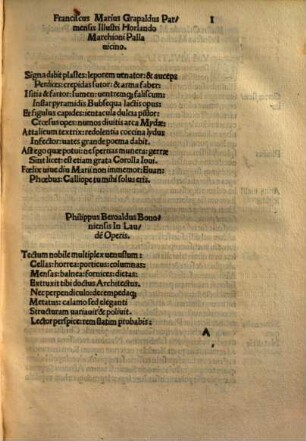 Franciscus Marius Grapaldus Par/
mensis Illustri Horlando
Marchioni Palla
uicino.
I
Signa dabit plastes: leporem uenator: & auceps
Perdices: crepidas sutor: & arma faber:
Isitia & fartor: sumen: uentremq; faliscum:
Inflat pyramidis Bubsequa lactis opus:
Et figulus capides: ientacula dulcia pistor:
Crœsus opes: numos diuitis arca Mydæ:
Attalicum textrix: redolentia coccina lydus
Infector: uates grande poema dabit.
Ast ego quæ potui ne spernas munera: gerræ
Sint licet: est etiam grata Corolla Ioui.
Fœlix uiue diu Marii non immemor: Euan:
Phœbus: Calliope tu mihi solus eris.
Philippus Beroaldus Bono/
niensis In Lau/
dē Operis.
Tectum nobile multiplex uenustum:
Cellas: horrea: porticus: columnas:
Mensas: balnea: fornices: diætas:
Extruxit tibi doctus Architectus.
Nec perpendiculo: decempedaq;
Metatus: calamo sed eleganti
Structuram uariauit & poliuit.
Lector perspice: rem statim probabis:
A